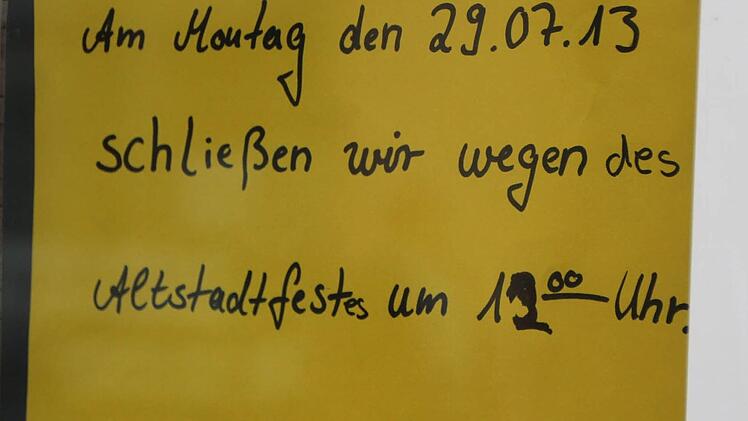 Am Montag den 29.07.13
schließen wir wegen des
Altstadtfestes um Uhr.